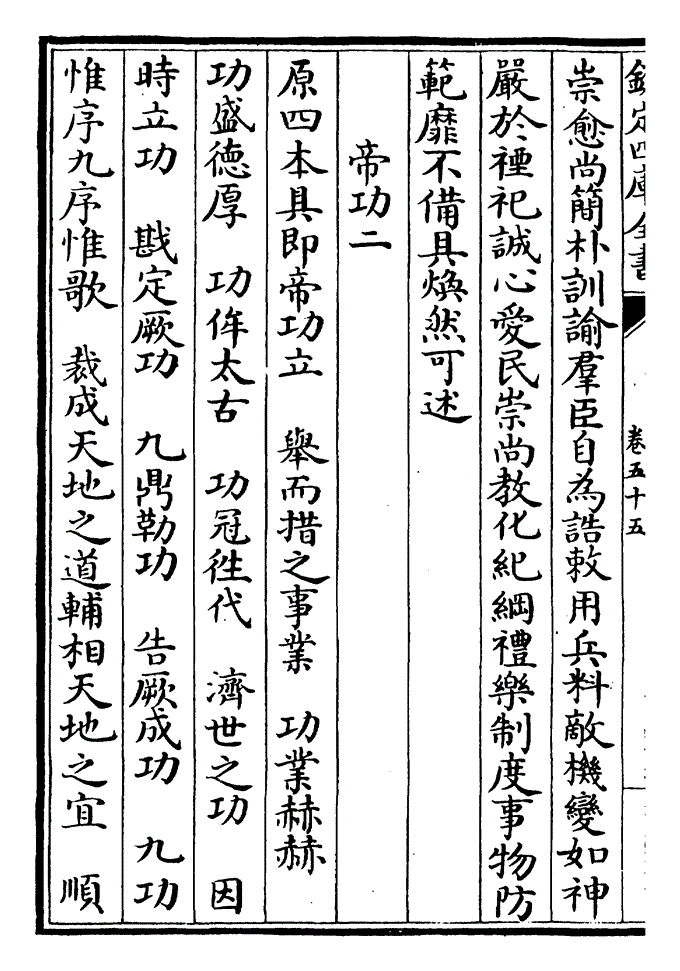 欽定四庫全書
卷五十五
崇愈尚簡朴訓諭羣臣自為誥敕用兵料敵機變如神
嚴於禋祀誠心愛民崇尚教化紀綱禮樂制度事物防
範靡不備具煥然可述
帝功二
原四本具即帝功立　舉而措之事業　功業赫赫
功盛德厚　功侔太古　功冠徃代　濟世之功　因
時立功　戡定厥功　九鼎勒功　告厥成功　九功
惟序九序惟歌　裁成天地之道輔相天地之宜　順